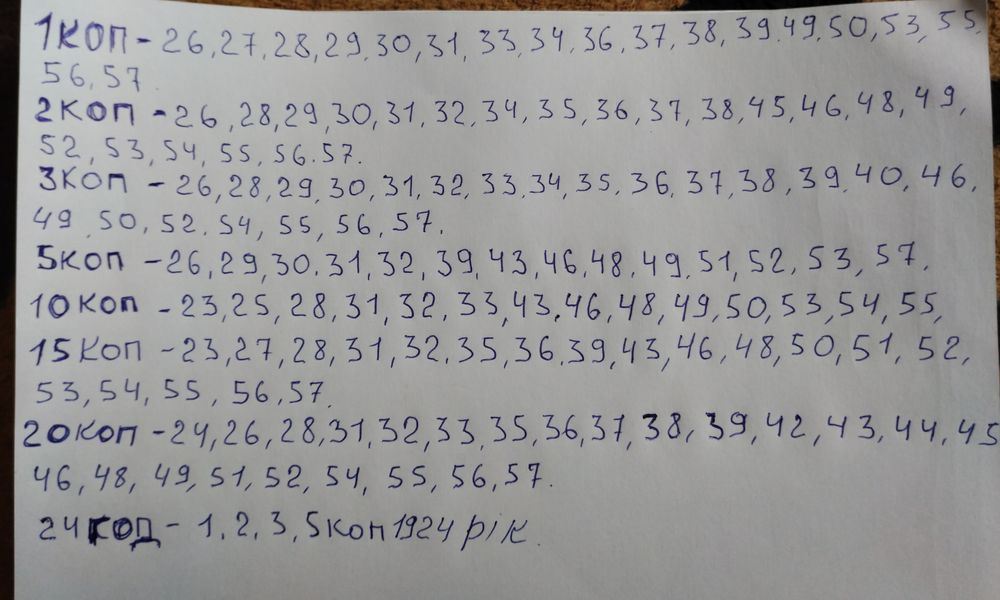 1КОП - 26, 27, 28, 29, 30, 31, 33, 34, 36, 37, 38, 39, 49, 50, 53, 55,
56, 57
2КОП - 26, 28, 29, 30, 31, 32, 34, 35, 36, 37, 38, 45, 46, 48, 49,
52, 53, 54, 55, 56. 57.
3КОП - 26, 28, 29, 30, 31, 32, 33, 34, 35, 36, 37, 38, 39, 40, 46,
49, 50, 52, 54, 55, 56, 57.
5КОП - 26, 29, 30, 31, 32, 39, 43, 46, 48, 49, 51, 52, 53, 57.
10 КОП - 23, 25, 28, 31, 32, 33, 43, 46, 48, 49, 50, 53, 54, 55,
15 КОП - 23, 27, 28, 31, 32, 35, 36, 39, 43, 46, 48, 50, 51, 52,
53, 54, 55, 56, 57.
20 КОП - 24, 26, 28, 31, 32, 33, 35, 36, 37, 38, 39, 42, 43, 44, 45
46, 48, 49, 51, 52, 54, 55, 56, 57.
24 ГОД - 1, 2, 3, 5 КОП 1924 рік.